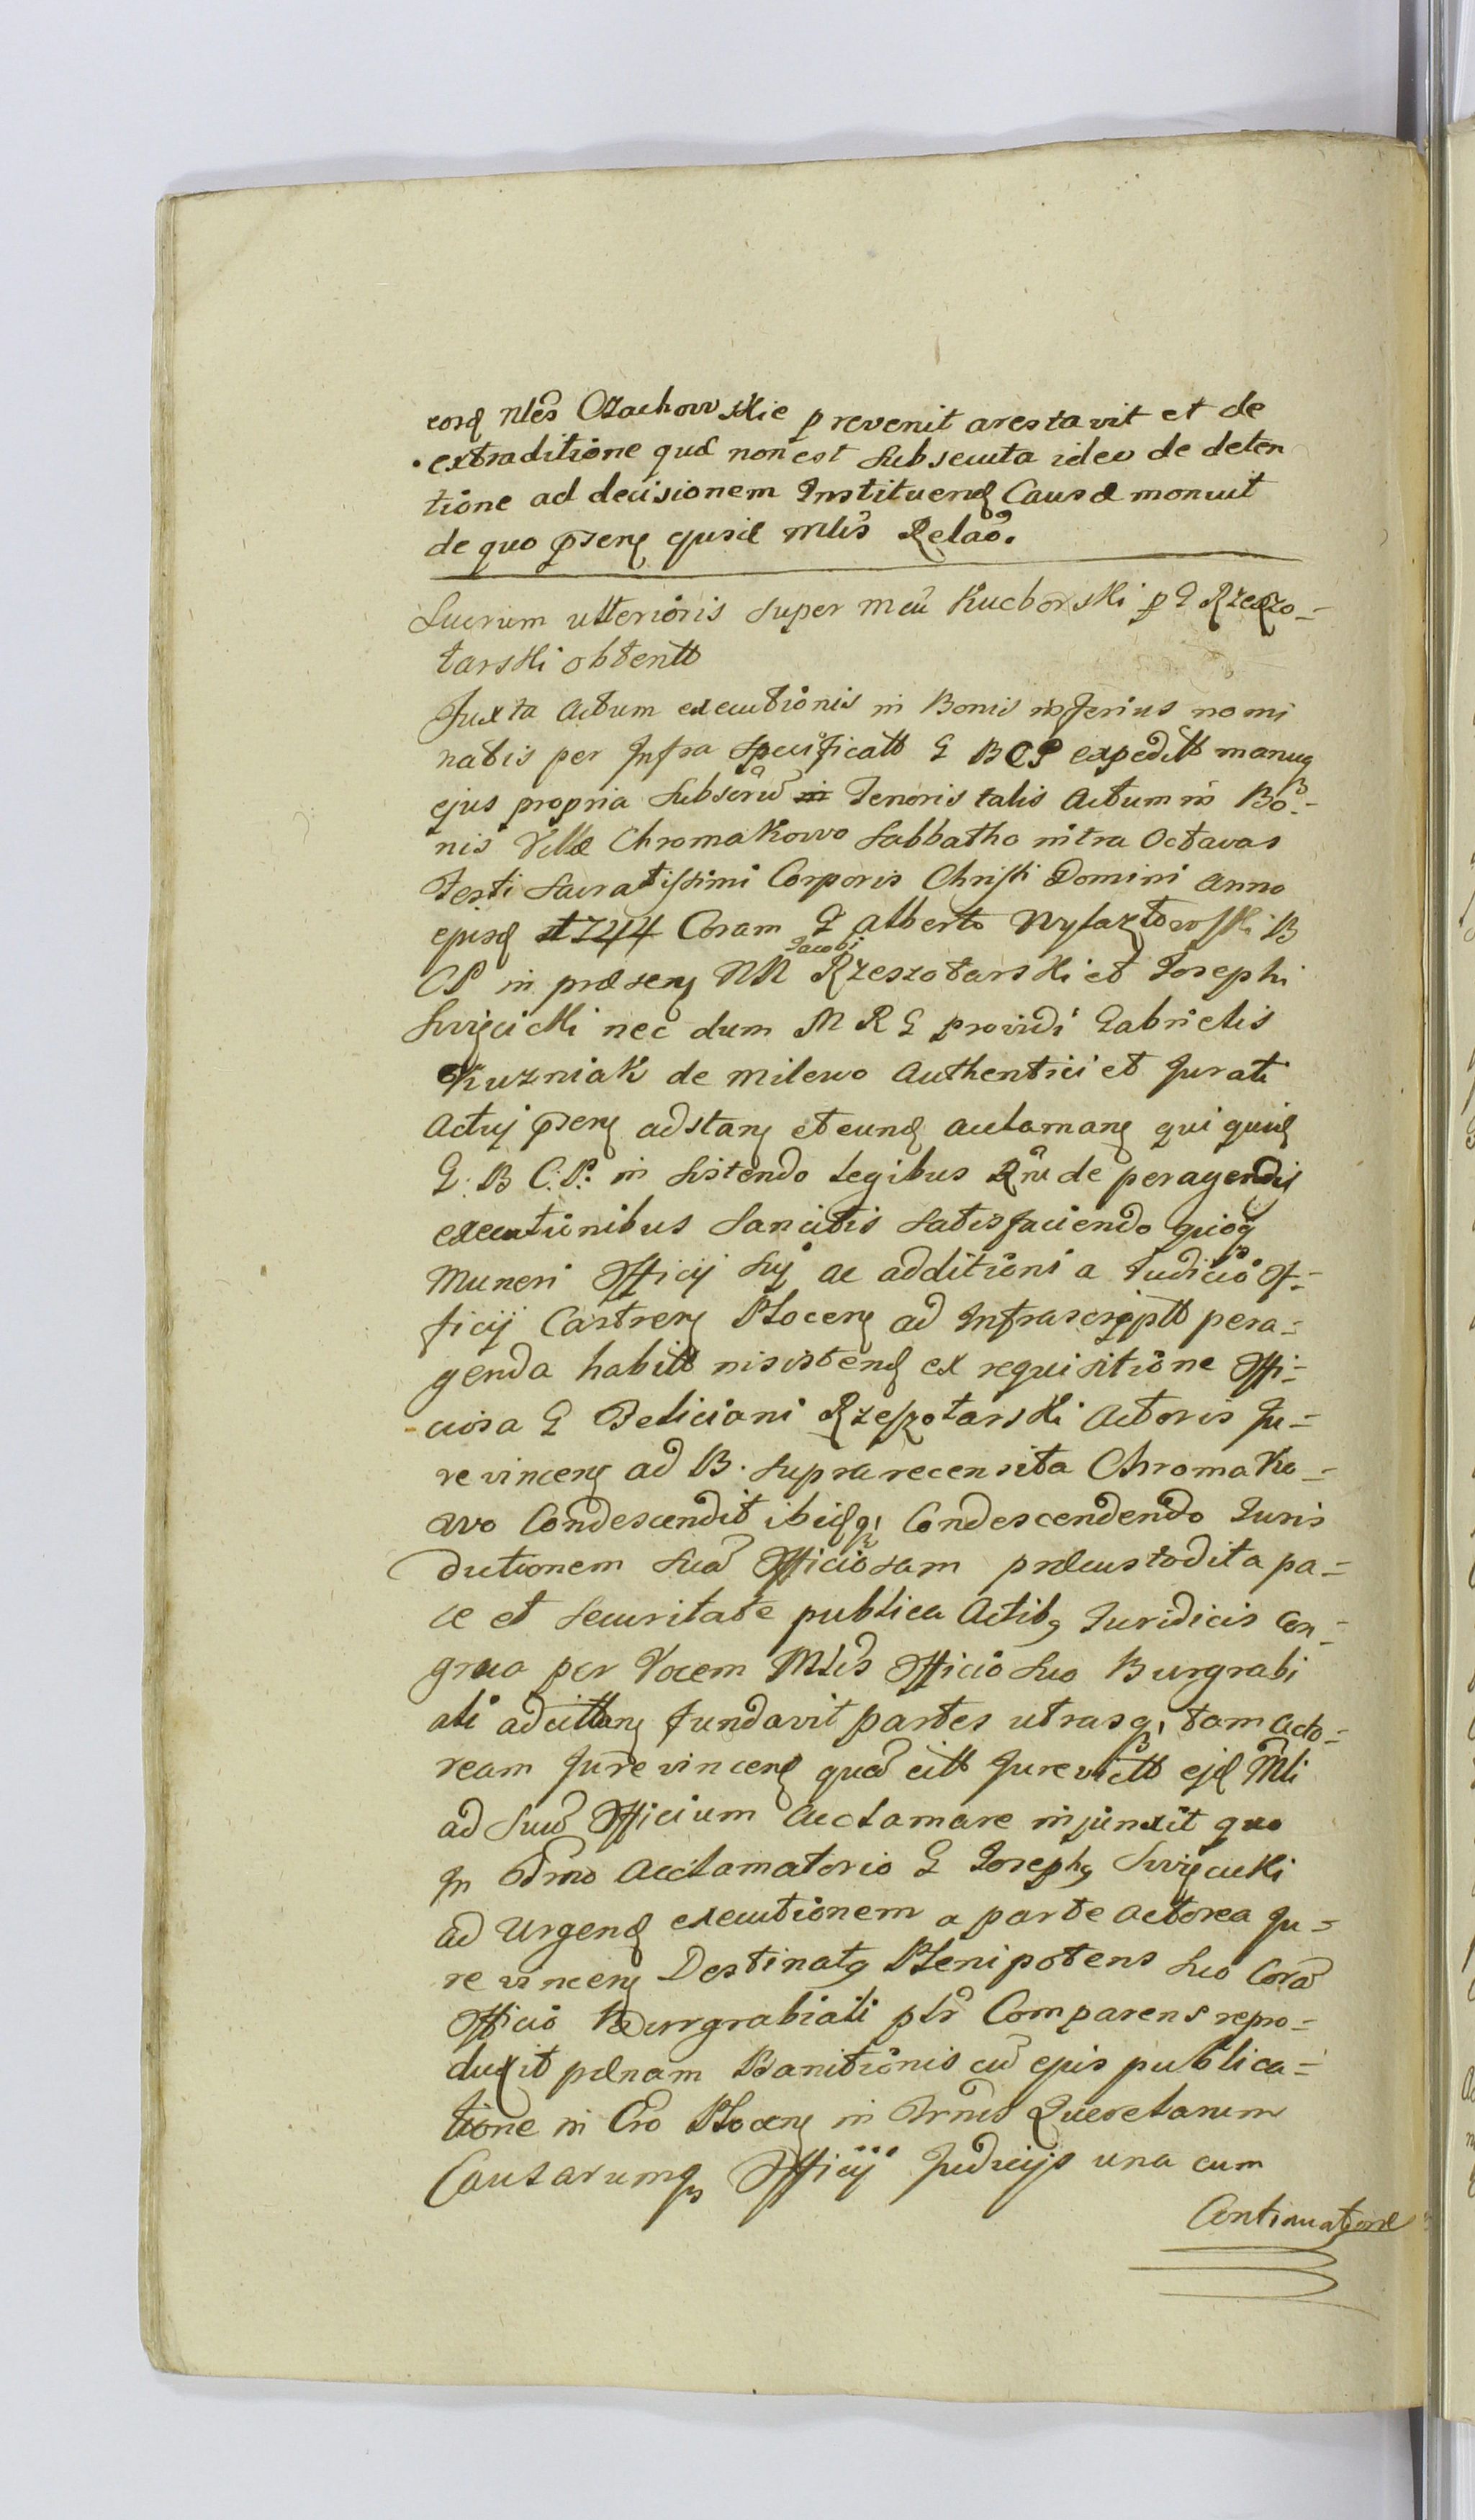 eord Nles Ozachowskie prevenit arestavit et de
extraditione quæ non est subsecuta ideo de deten
tione ad decisionem Instituend Causæ monuit
de quo præseng ejusd Mlis Relao.
Lucrum ulterioris super Mcu Kuchorski p G Rzeszo=
tarski obtentt
Juxta Actum executionis in Bonis inferius nomi
natis per Infra specificatt G B C P expeditt manuq
ejus propria subscru Tenoris talis Actum in Bo=
nis Villæ Chromakowo Sabbatho intra Octavas
Festi Sacratissimi Corporis Christi Domini Anno
ejusd 1744 Coram G Alberto B
C P in præseng NN Jacobi Rzeszotarski et Josephi
Swięcicki nec dum M R G providi Gabrielis
Kuzniak de Milewo Authentici et Jurati
Actuj præseng adstang et eund acclamang qui quid
G. B C. P. in sistendo Legibus Rni de peragendis
executionibus Sancitis satisfaciendo quoq
Muneri Officij Suj ac additioni a Judicio Of=
ficij Castreng Ploceng ad Infrascriptt pera=
genda habitt insistend ex requisitione Offi=
ciosa G Feliciani Rzeszotarski Actoris Ju=
re vinceng ad B. supra recensita Chromako=
wo Condescendit ibidq Condescendendo Juris
dictionem Suã Officiosam præcustodita pa=
ce et securitate publica Actibq Juridicis con=
grua per Vocem Mlis Officio Suo Burgrabi
ali adcittang fundavit partes utrasq, tam Acto=
ream Jure vinceng quã citt Jure victt ejd Mli
ad Suũ Officium Acclamare injunxit quo
In Trno Acclamatorio G Josephq Swięcicki
ad Urgend executionem a parte Actorea Ju=
re vinceng Destinatq Plenipotens Suo Corã
Officio Burgrabiali plr Comparens repro=
duxit pænam Banitionis cũ ejus publica=
tione in Cro Ploceng in Trnis Querelarum
Causarumq Officij Judicijs una cum
Continuatione